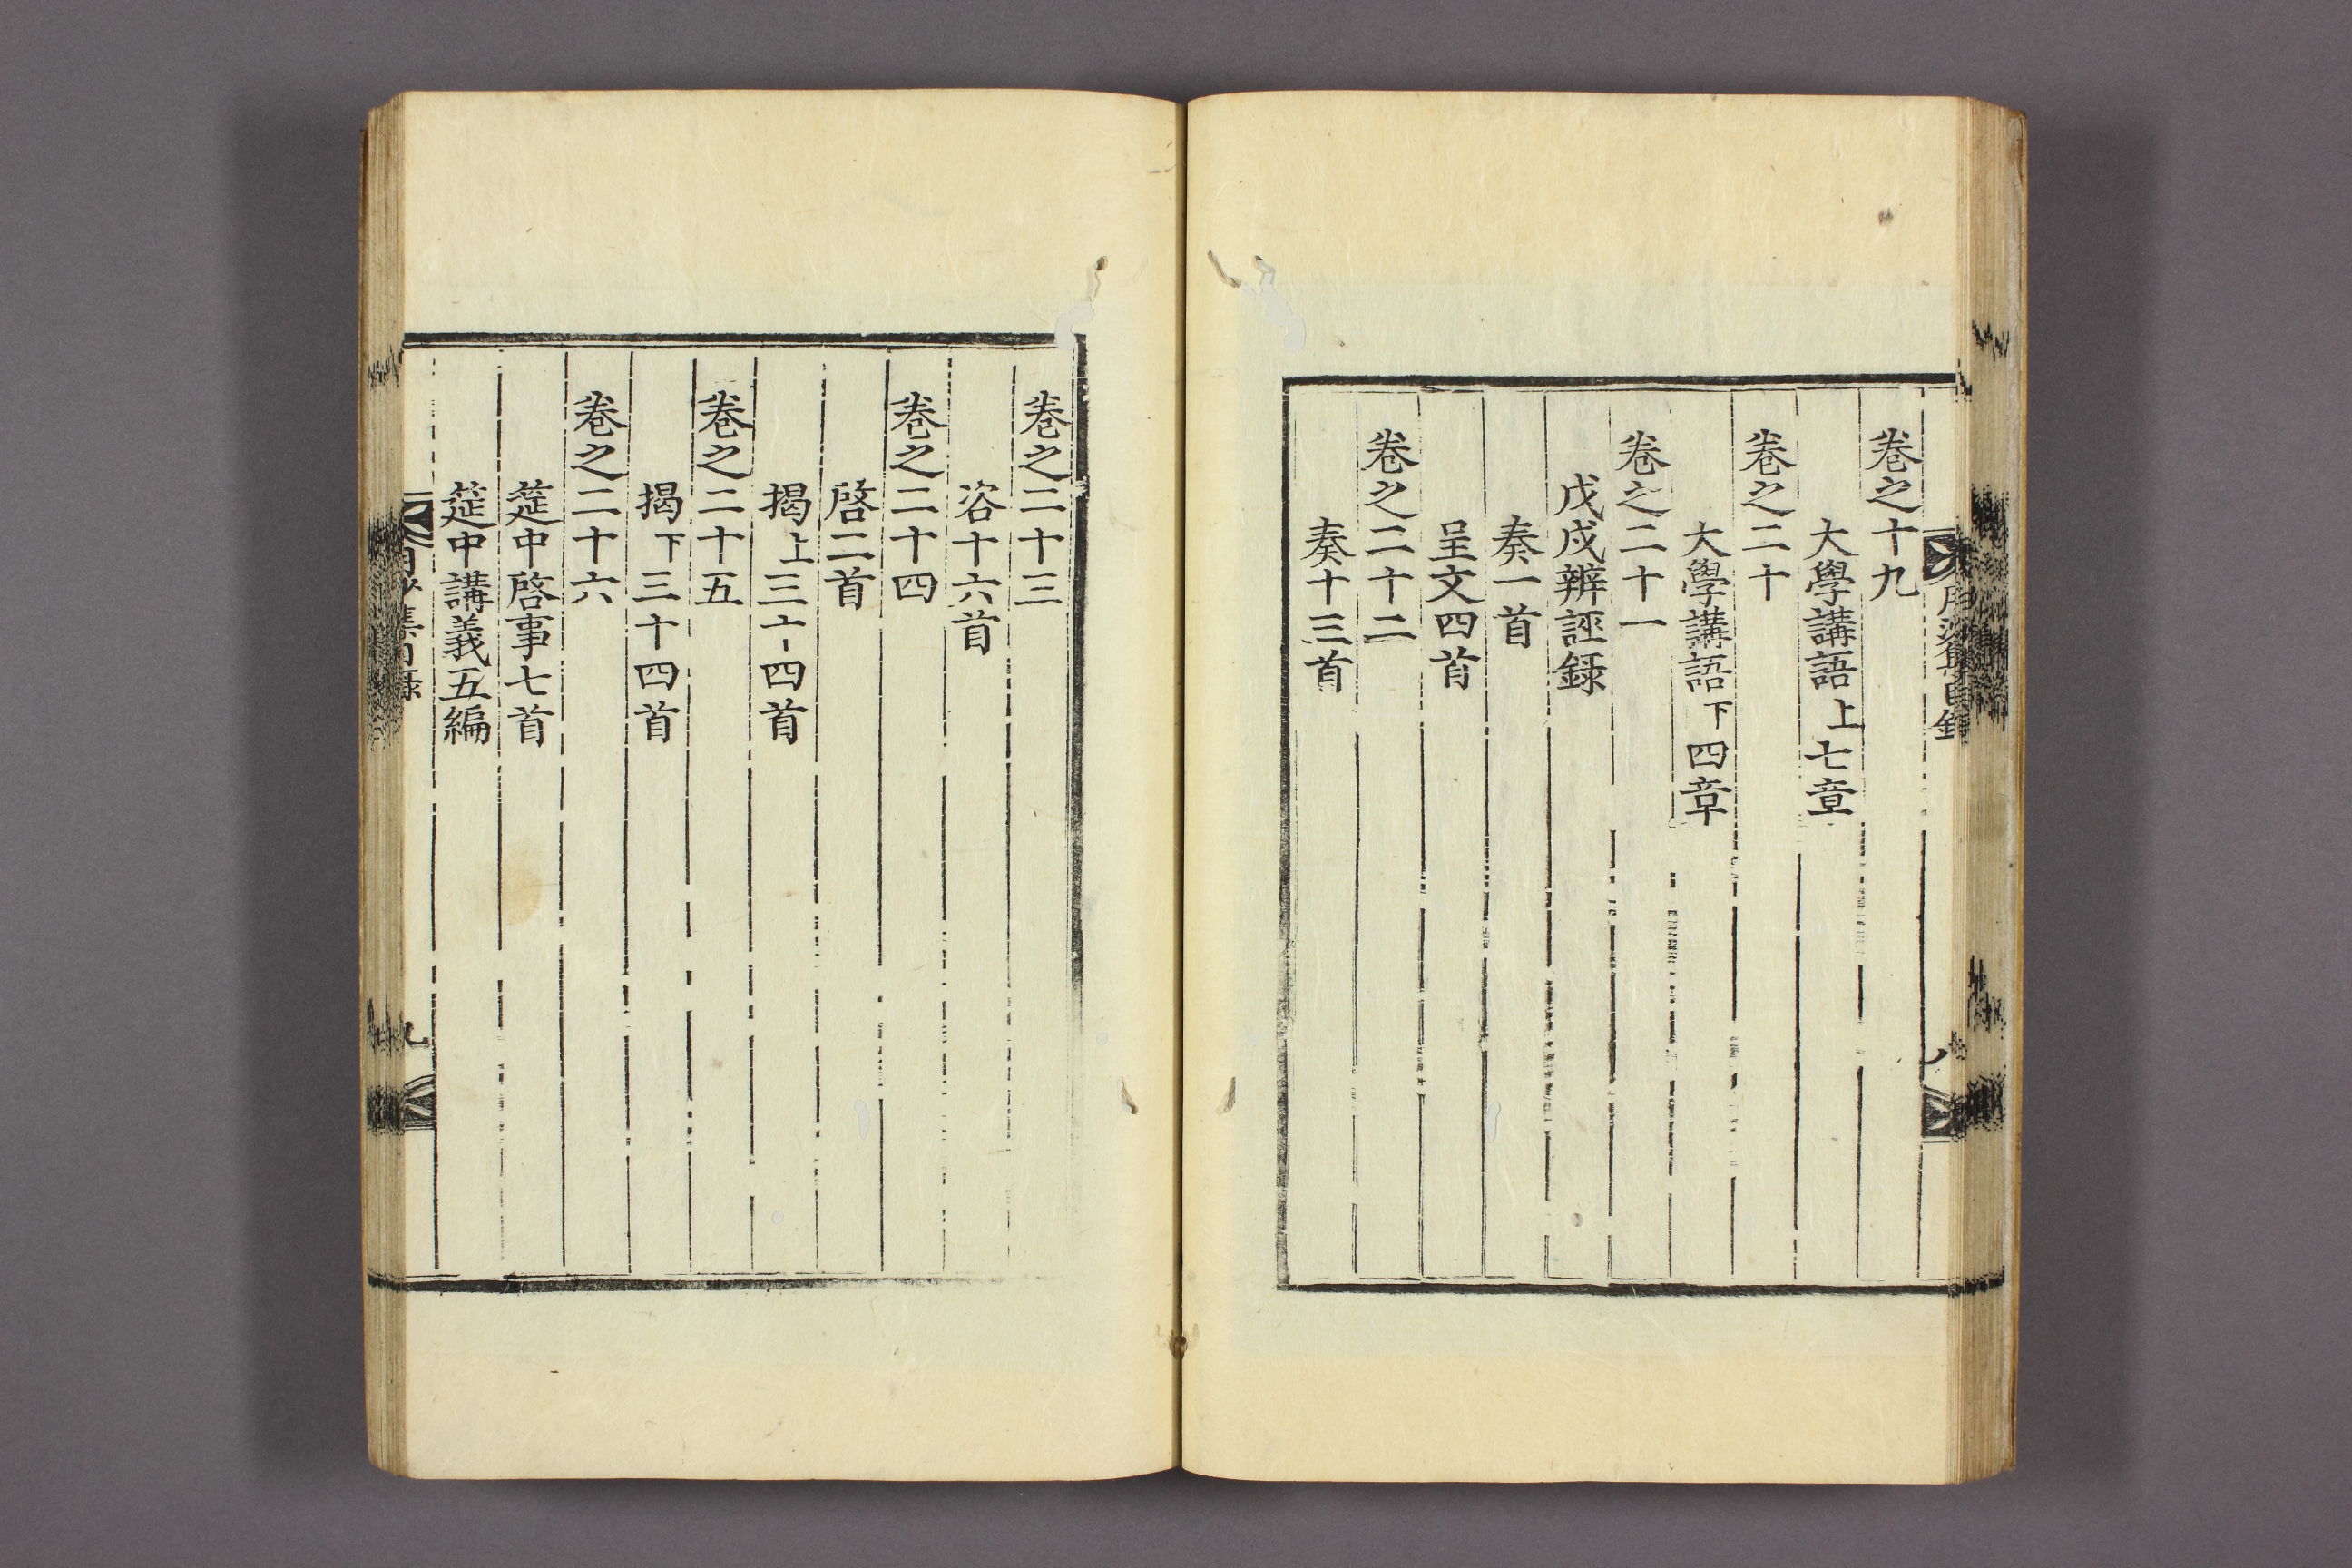 月沙集目錄
八
卷之十九
大學講語上七章
卷之二十
大學講語下四章
卷之二十一
戊戌辨誣錄
奏一首
呈文四首
卷之二十二
奏十三首
卷之二十三
咨十六首
卷之二十四
啓二首
揭上三十四首
卷之二十五
揭下三十四首
卷之二十六
筵中啓事七首
筵中講義五編
月沙集目錄
九